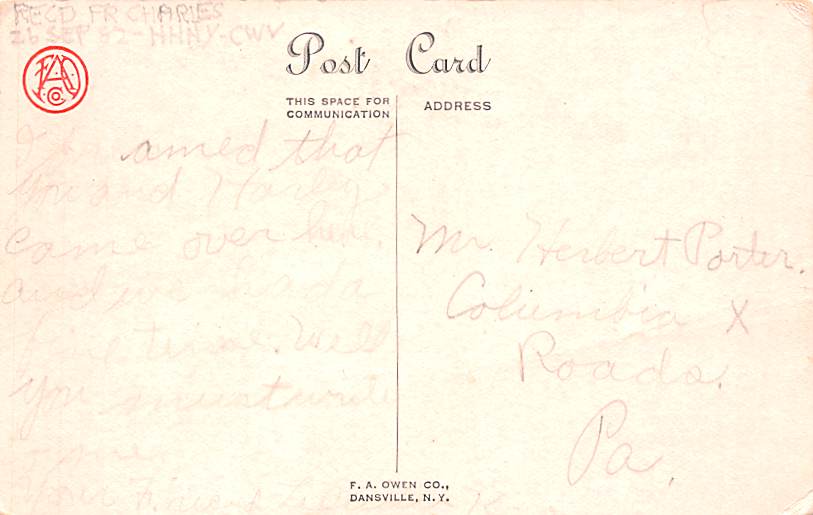 RECD FR CHARLES
26 SEP 82-NHNY-CWV
FAO
Co
Post Card
THIS SPACE FOR
COMMUNICATION
ADDRESS
amed that
you and Harley
came over here.
and we had a
fine time. Well
you must write
me
Your Friend
Mr. Herbert Porter.
Columbia X
Roads.
Pa.
F. A. OWEN CO.,
DANSVILLE, N.Y.